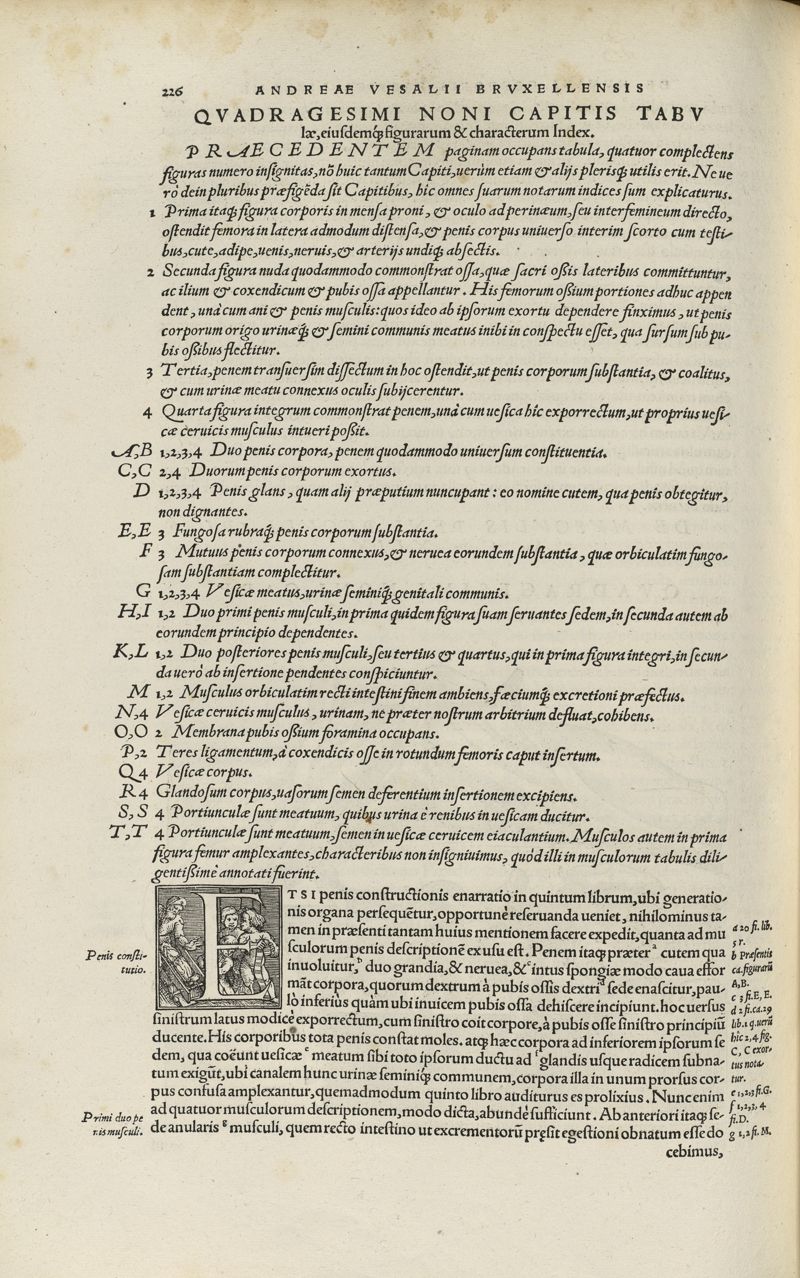 226 ANDREAE VESALII BRVXELLENSIS
QVADRAGESIMI NONI CAPITIS TABV
læ, eiuſdemq́; figurarum & characterum Index.
PRAECEDENTEM paginam occupans tabula, quatuor complectens
figuras numero inſignitas, nõ huic tantum Capiti, uerùm etiam & alijs pleriſq́; utilis erit. Ne ue
rò dein pluribus præfigẽda ſit Capitibus, hic omnes ſuarum notarum indices ſum explicaturus.
1 Prima itaq́; figura corporis in menſa proni, & oculo ad perinæum, ſeu interfemineum directo,
oſtendit femora in latera admodum diſtenſa, & penis corpus uniuerſo interim ſcorto cum teſti-
bus, cute, adipe, uenis, neruis, & arterijs undiq́; abſectis.
2 Secunda figura nuda quodammodo commonſtrat oſſa, quæ ſacri oßis lateribus committuntur,
ac ilium & coxendicum & pubis oſſa appellantur. His femorum oßium portiones adhuc appen
dent, unà cum ani & penis muſculis: quos ideo ab ipſorum exortu dependere finximus, ut penis
corporum origo urinæq́; & ſemini communis meatus inibi in conſpectu eſſet, qua ſurſum ſub pu-
bis oßibus flectitur.
3 Tertia, penem tranſuerſim diſſectum in hoc oſtendit, ut penis corporum ſubſtantia, & coalitus,
& cum urinæ meatu connexus oculis ſubijcerentur.
4 Quarta figura integrum commonſtrat penem, unà cum ueſica hic exporrectum, ut proprius ueſi-
cæ ceruicis muſculus intueri poßit.
A,B 1,2,3,4 Duo penis corpora, penem quodammodo uniuerſum conſtituentia.
C,C 2,4 Duorum penis corporum exortus.
D 1,2,3,4 Penis glans, quam alij præputium nuncupant: eo nomine cutem, qua penis obtegitur,
non dignantes.
E,E 3 Fungoſa rubraq́; penis corporum ſubſtantia.
F 3 Mutuus penis corporum connexus, & neruea eorundem ſubſtantia, quæ orbiculatim fungo-
ſam ſubſtantiam complectitur.
G 1,2,3,4 Veſicæ meatus, urinæ ſeminiq́; genitali communis.
H,I 1,2 Duo primi penis muſculi, in prima quidem figura ſuam ſeruantes ſedem, in ſecunda autem ab
eorundem principio dependentes.
K,L 1,2 Duo poſteriores penis muſculi, ſeu tertius & quartus, qui in prima figura integri, in ſecun-
da uerò ab inſertione pendentes conſpiciuntur.
M 1,2 Muſculus orbiculatim recti inteſtini finem ambiens, fæciumq́; excretioni præfectus.
N,4 Veſicæ ceruicis muſculus, urinam, ne præter noſtrum arbitrium defluat, cohibens.
O,O 2 Membrana pubis oßium foramina occupans.
P,2 Teres ligamentum, à coxendicis oſſe in rotundum femoris caput inſertum.
Q4 Veſicæ corpus.
R4 Glandoſum corpus, uaſorum ſemen deferentium inſertionem excipiens.
S, S 4 Portiunculæ ſunt meatuum, quibus urina è renibus in ueſicam ducitur.
T,T 4 Portiunculæ ſunt meatuum, ſemen in ueſicæ ceruicem eiaculantium. Muſculos autem in prima
figura femur amplexantes, characteribus non inſigniuimus, quòd illi in muſculorum tabulis dili-
gentißimè annotati fuerint.
ETSI penis conſtructionis enarratio in quintum librum, ubi generatio-
nis organa perſequẽtur, opportunè reſeruanda ueniet, nihilominus ta-
men in præſenti tantam huius mentionem facere expedit, quanta ad mu
ſculorum penis deſcriptionẽ ex uſu eſt. Penem itaq́; præter a cutem qua
inuoluitur, b duo grandia, & neruea, & c intus ſpongiæ modo caua effor
mãt corpora, quorum dextrum à pubis oſſis dextri d ſede enaſcitur, pau-
lò inferius quàm ubi inuicem pubis oſſa dehiſcere incipiunt. hoc uerſus
ſiniſtrum latus modicè exporrectum, cum ſiniſtro coit corpore, à pubis oſſe ſiniſtro principiũ
ducente. His corporibus tota penis conſtat moles. atq́; hæc corpora ad inferiorem ipſorum ſe
dem, qua coëunt ueſicæ e meatum ſibi toto ipſorum ductu ad f glandis uſque radicem ſubna-
tum exigũt, ubi canalem hunc urinæ ſeminiq́; communem, corpora illa in unum prorſus cor-
pus confuſa amplexantur, quemadmodum quinto libro auditurus es prolixius. Nunc enim
ad quatuor muſculorum deſcriptionem, modo dicta, abundè ſufficiunt. Ab anteriori itaq́; ſe-
de anularis g muſculi, quem recto inteſtino ut excrementorũ pręſit egeſtioni obnatum eſſe do
cebimus,
Penis conſti-
tutio.
Primi duo pe
nis muſculi.
a 20 fi. lib.
5 r.
b Præſentis
ca. figurarũ
A, B.
c 3 fi. E, E.
d 2 fi. ca. 29
lib. 1. q. uerũ
hic 2,4 fig.
C, C exor-
tus nota-
tur.
e 1,2,3 fi. G.
f 1,2,3,4
fi. D.
g 1,2 fi. M.